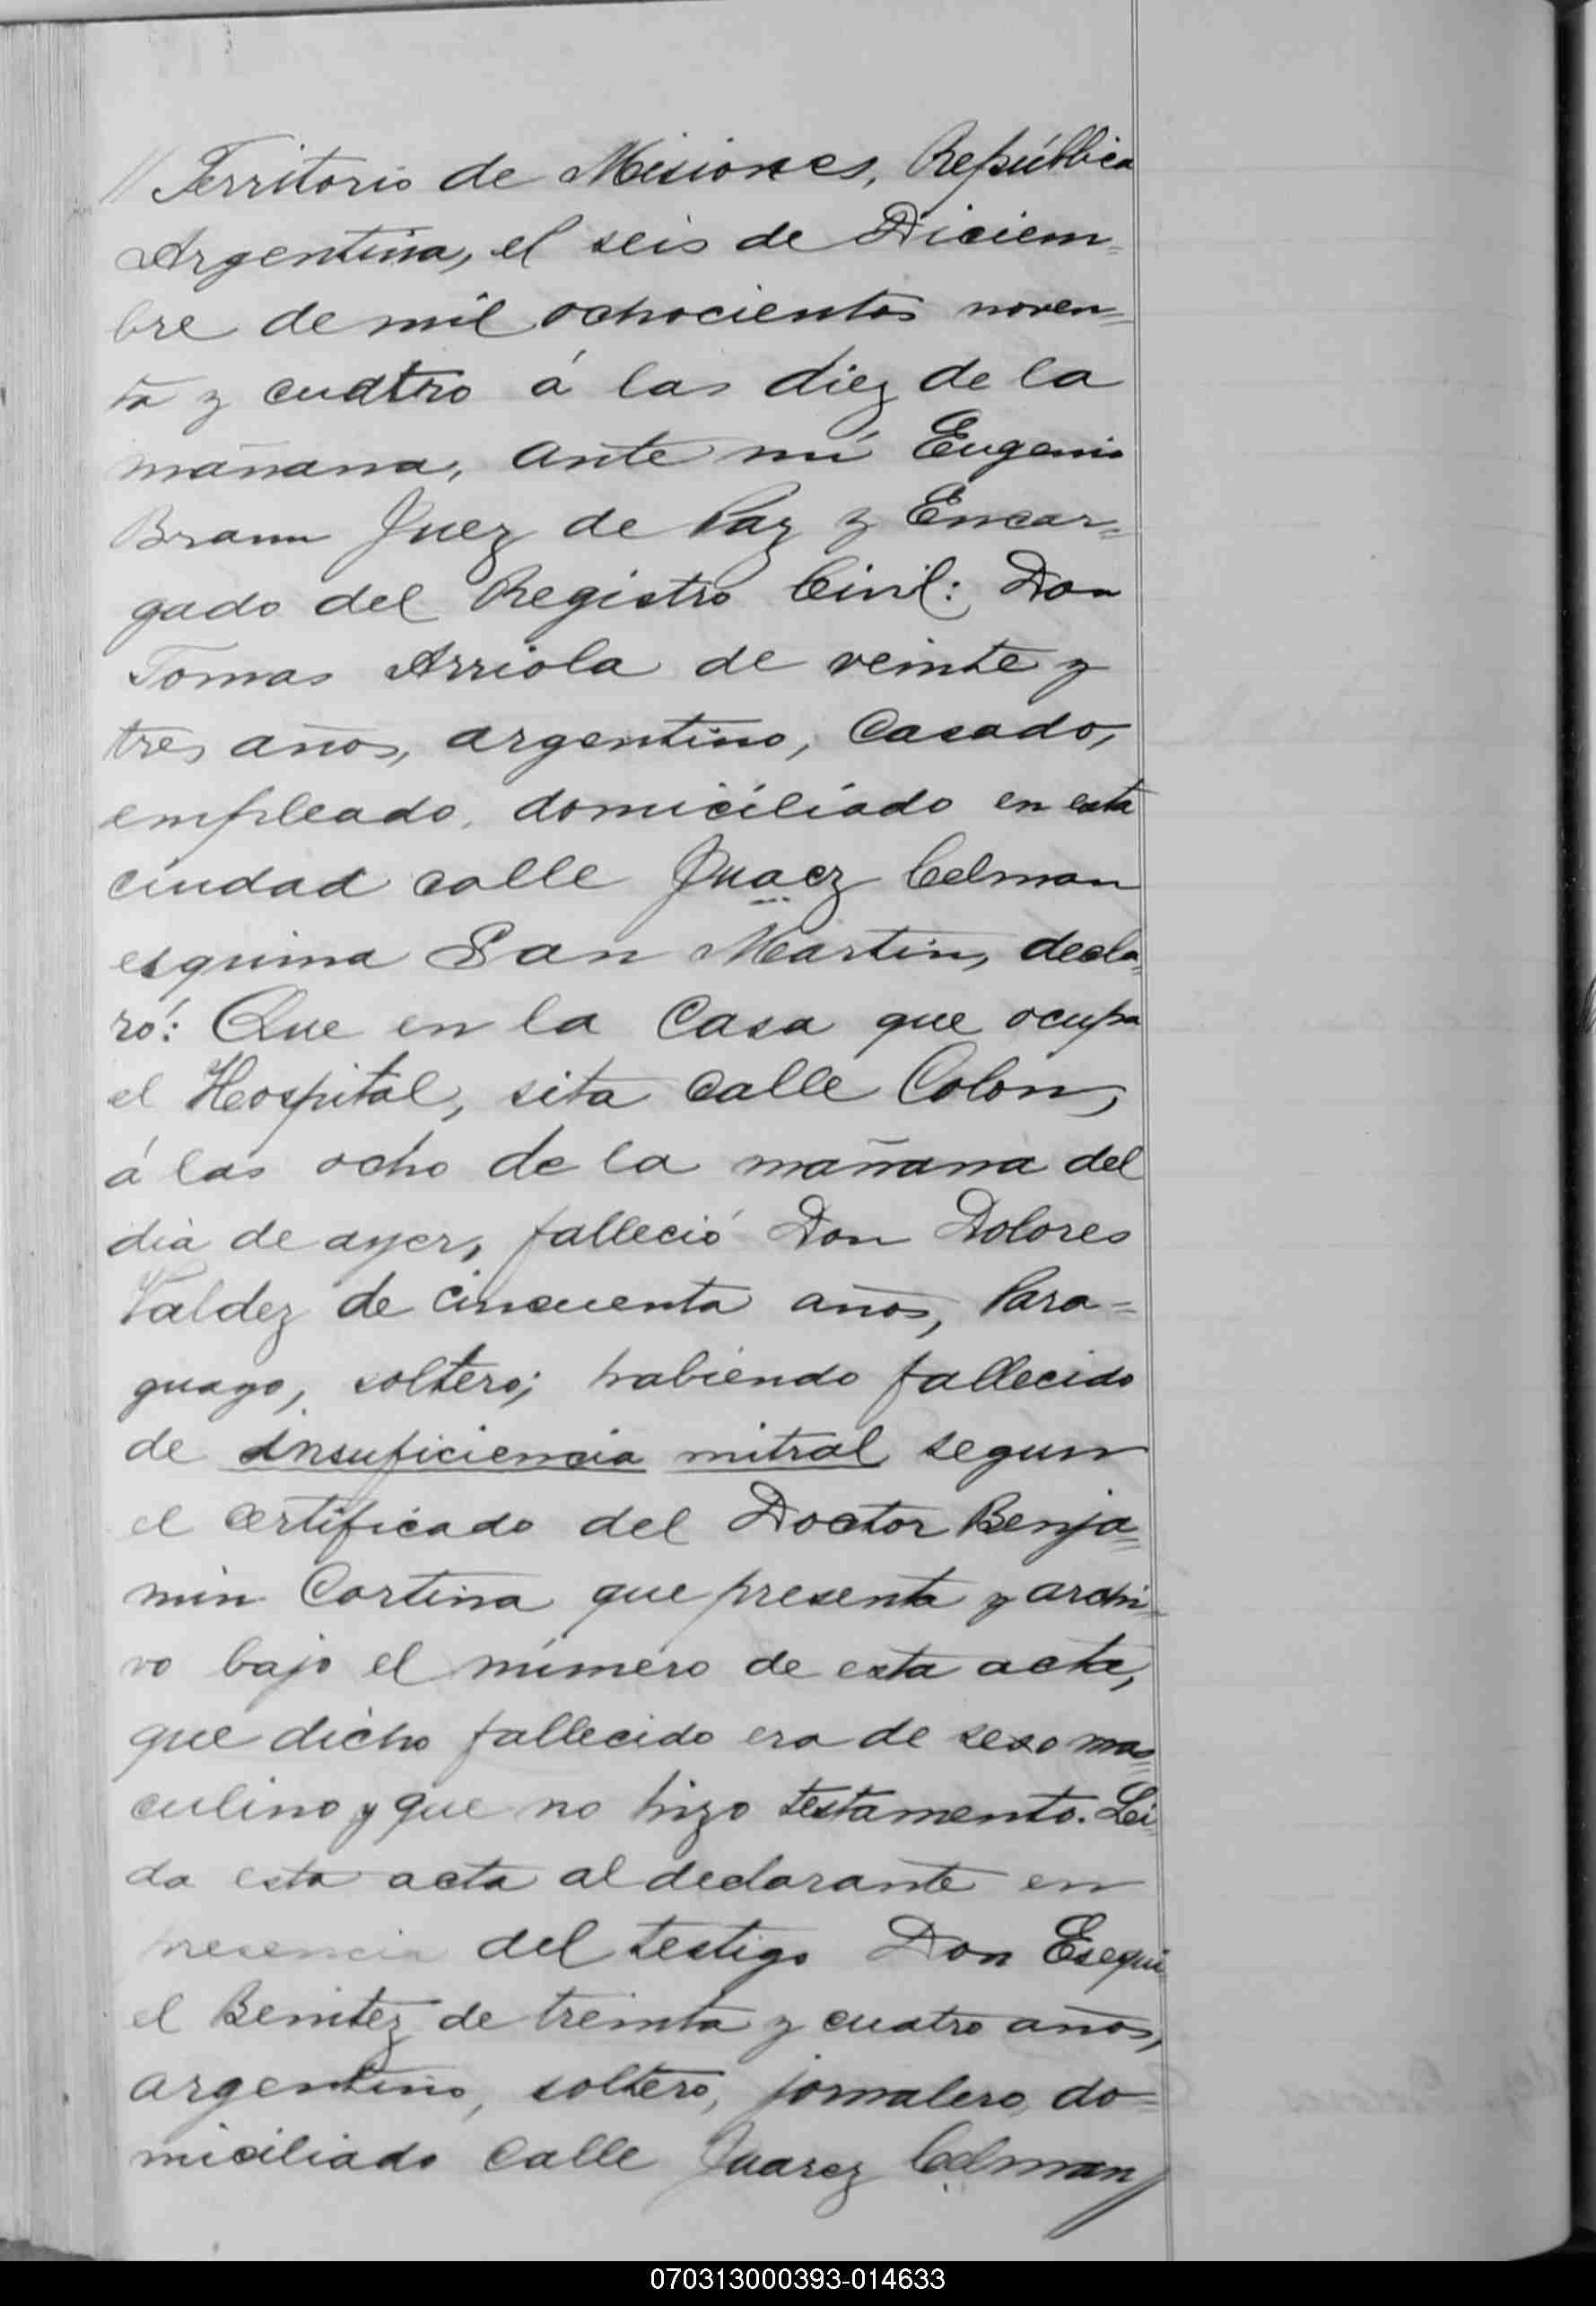 // Territorio de Misiones, República
Argentina, el seis de Diciem=
bre de mil ochocientos noven=
ta y cuatro á las diez de la
mañana, ante mi Eugenio
Braun Juez de Paz y Encar=
gado del Registro Civil: Don
Tomas Arriola de veinte y
tres años, argentino, casado,
empleado, domiciliado en esta
ciudad calle Juaez Celman
esquina San Martin, decla=
ró: Que en la casa que ocupa
el Hospital, sita calle Colon,
á las ocho de la mañana del
dia de ayer, falleció Don Dolores
Valdez de cincuenta años, Para=
guayo, soltero; habiendo fallecido
de insuficiencia mitral segun
el certificado del Doctor Benja=
min Cortina que presenta y archi=
vo bajo el número de esta acta,
que dicho fallecido era de sexo mas=
culino y que no hizo testamento. Lei=
da esta acta al declarante en
presencia del testigo Don Esequi
el Benitez de treinta y cuatro años,
argentino, soltero, jornalero, do=
miciliado calle Juarez Celman //
070313000393-014633